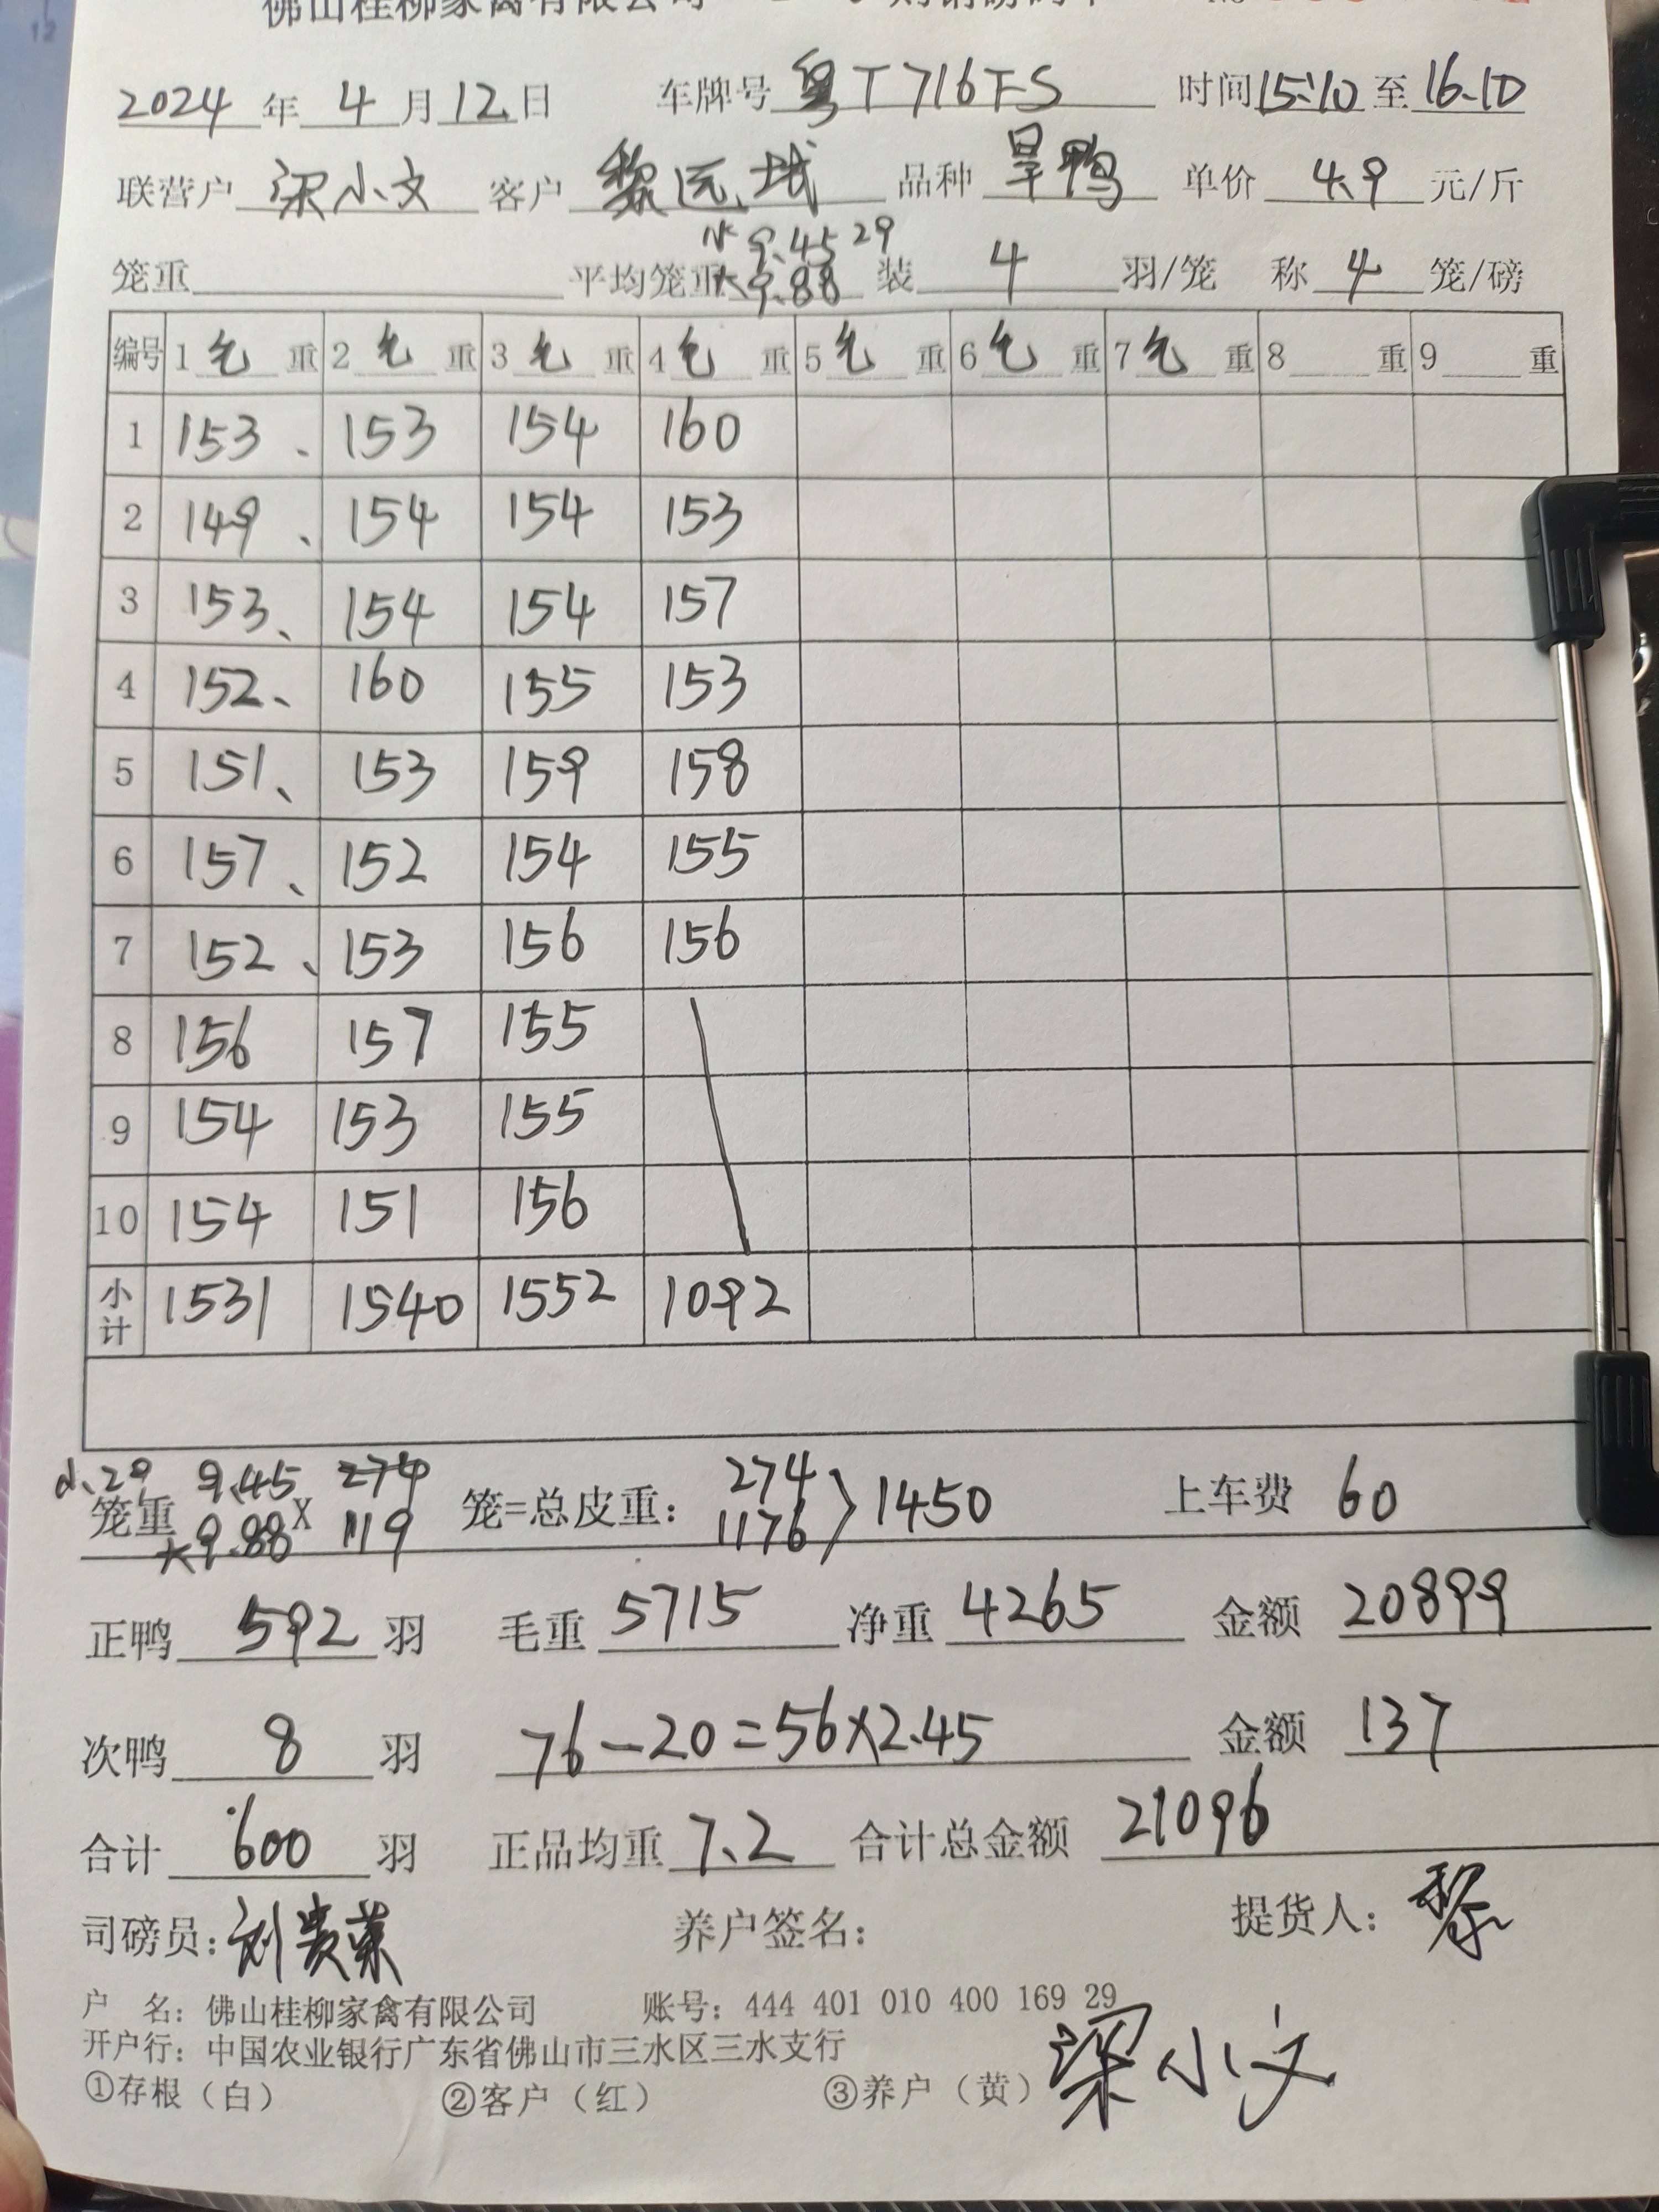 佛山桂柳家禽有限公司
2024年4月12日 车牌号 粤T716FS 时间15:10至16.10
联营户 梁小文 客户 黎远城 品种 旱鸭 单价 4.9 元/斤
小 9.45 29
笼重 平均笼重 大9.88 装 4 羽/笼 称 4 笼/磅
编号 1毛重 2毛重 3毛重 4毛重 5毛重 6毛重 7毛重 8重 9重
1 153、 153 154 160
2 149、 154 154 153
3 153、 154 154 157
4 152、 160 155 153
5 151、 153 159 158
6 157、 152 154 155
7 152、 153 156 156
8 156 157 155
9 154 153 155
10 154 151 156
小计 1531 1540 1552 1092
小29 9.45 274 274
笼重 大9.88 X 119 笼=总皮重: 1176 } 1450 上车费 60
正鸭 592 羽 毛重 5715 净重 4265 金额 20899
次鸭 8 羽 76-20=56×2.45 金额 137
合计 600 羽 正品均重 7.2 合计总金额 21096
司磅员: 刘贵菜 养户签名: 提货人: 黎
户 名: 佛山桂柳家禽有限公司 账号: 444 401 010 400 169 29
开户行: 中国农业银行广东省佛山市三水区三水支行
①存根（白） ②客户（红） ③养户（黄） 梁小文